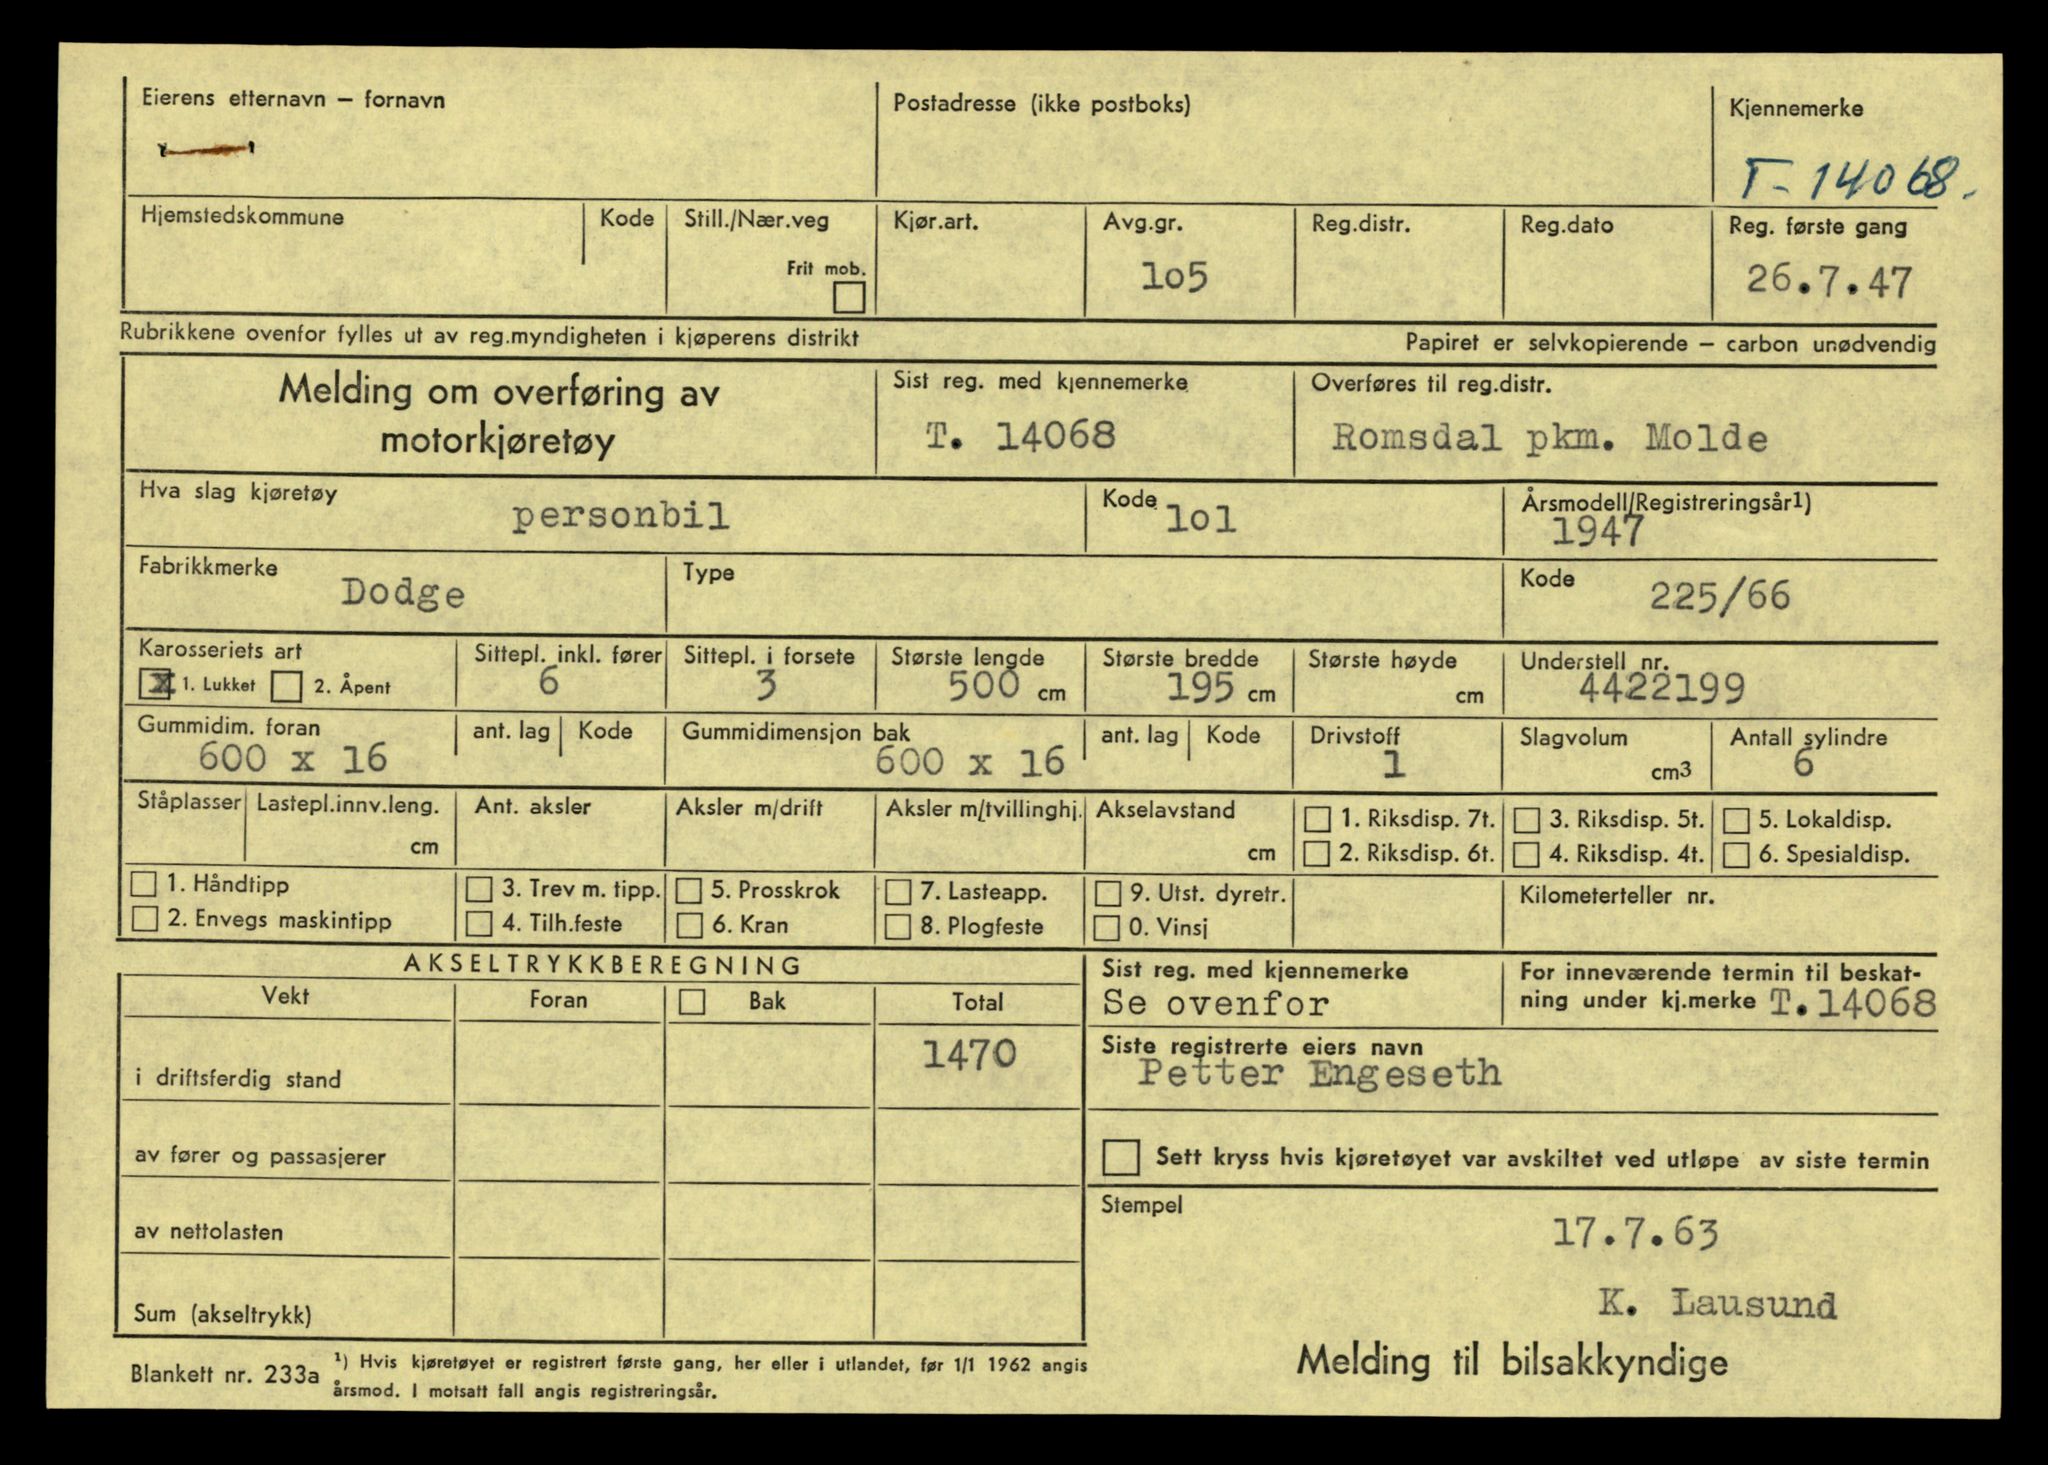 Eierens etternavn – fornavn
Postadresse (ikke postboks)
Kjennemerke
T-14068.
Hjemstedskommune
Kode
Still./Nær.veg
Frit mob.
Kjør.art.
Avg.gr.
lo5
Reg.distr.
Reg.dato
Reg. første gang
26.7.47
Rubrikkene ovenfor fylles ut av reg.myndigheten i kjøperens distrikt
Papiret er selvkopierende – carbon unødvendig
Melding om overføring av
motorkjøretøy
Sist reg. med kjennemerke
T. 14068
Overføres til reg.distr.
Romsdal pkm. Molde
Hva slag kjøretøy
personbil
Kode
lol
Årsmodell/Registreringsår1)
1947
Fabrikkmerke
Dodge
Type
Kode
225/66
Karosseriets art
X 1. Lukket 2. Åpent
Sittepl. inkl. fører
6
Sittepl. i forsete
3
Største lengde
500 cm
Største bredde
195 cm
Største høyde
cm
Understell nr.
4422199
Gummidim. foran
600 x 16
ant. lag
Kode
Gummidimensjon bak
600 x 16
ant. lag
Kode
Drivstoff
1
Slagvolum
cm3
Antall sylindre
6
Ståplasser
Lastepl.innv.leng.
cm
Ant. aksler
Aksler m/drift
Aksler m/tvillinghj.
Akselavstand
cm
1. Riksdisp. 7t.
2. Riksdisp. 6t.
3. Riksdisp. 5t.
4. Riksdisp. 4t.
5. Lokaldisp.
6. Spesialdisp.
1. Håndtipp
2. Envegs maskintipp
3. Trev m. tipp.
4. Tilh.feste
5. Prosskrok
6. Kran
7. Lasteapp.
8. Plogfeste
9. Utst. dyretr.
0. Vinsj
Kilometerteller nr.
AKSELTRYKKBEREGNING
Vekt
Foran
Bak
Total
i driftsferdig stand
1470
av fører og passasjerer
av nettolasten
Sum (akseltrykk)
Sist reg. med kjennemerke
Se ovenfor
For inneværende termin til beskat-
ning under kj.merke T.14068
Siste registrerte eiers navn
Petter Engeseth
Sett kryss hvis kjøretøyet var avskiltet ved utløpe av siste termin
Stempel
17.7.63
K. Lausund
Melding til bilsakkyndige
Blankett nr. 233a
1) Hvis kjøretøyet er registrert første gang, her eller i utlandet, før 1/1 1962 angis
årsmod. I motsatt fall angis registreringsår.